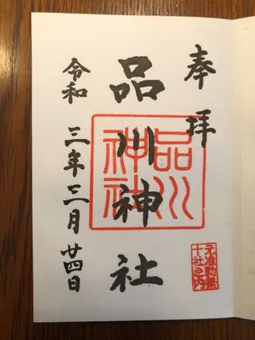 奉拝
品川神社
品川神社
令和三年三月廿四日